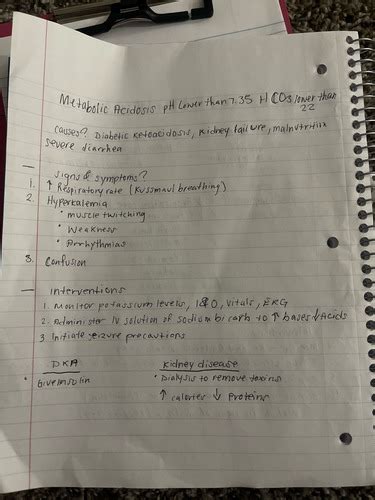 Metabolic Acidosis pH lower than 7.35 HCO3 lower than 22
causes? Diabetic ketoacidosis, kidney failure, malnutrition
severe diarrhea
— signs & symptoms?
1. ↑ Respiratory rate (Kussmaul breathing)
2. Hyperkalemia
• muscle twitching
• Weakness
• Arrhythmias
3. Confusion
— Interventions
1. Monitor potassium levels, I&O, vitals, EKG
2. Administer IV solution of sodium bicarb to ↑ bases ↓ Acids
3 Initiate seizure precautions
DKA
• Give insulin
Kidney disease
• Dialysis to remove toxins
↑ calories ↓ Proteins